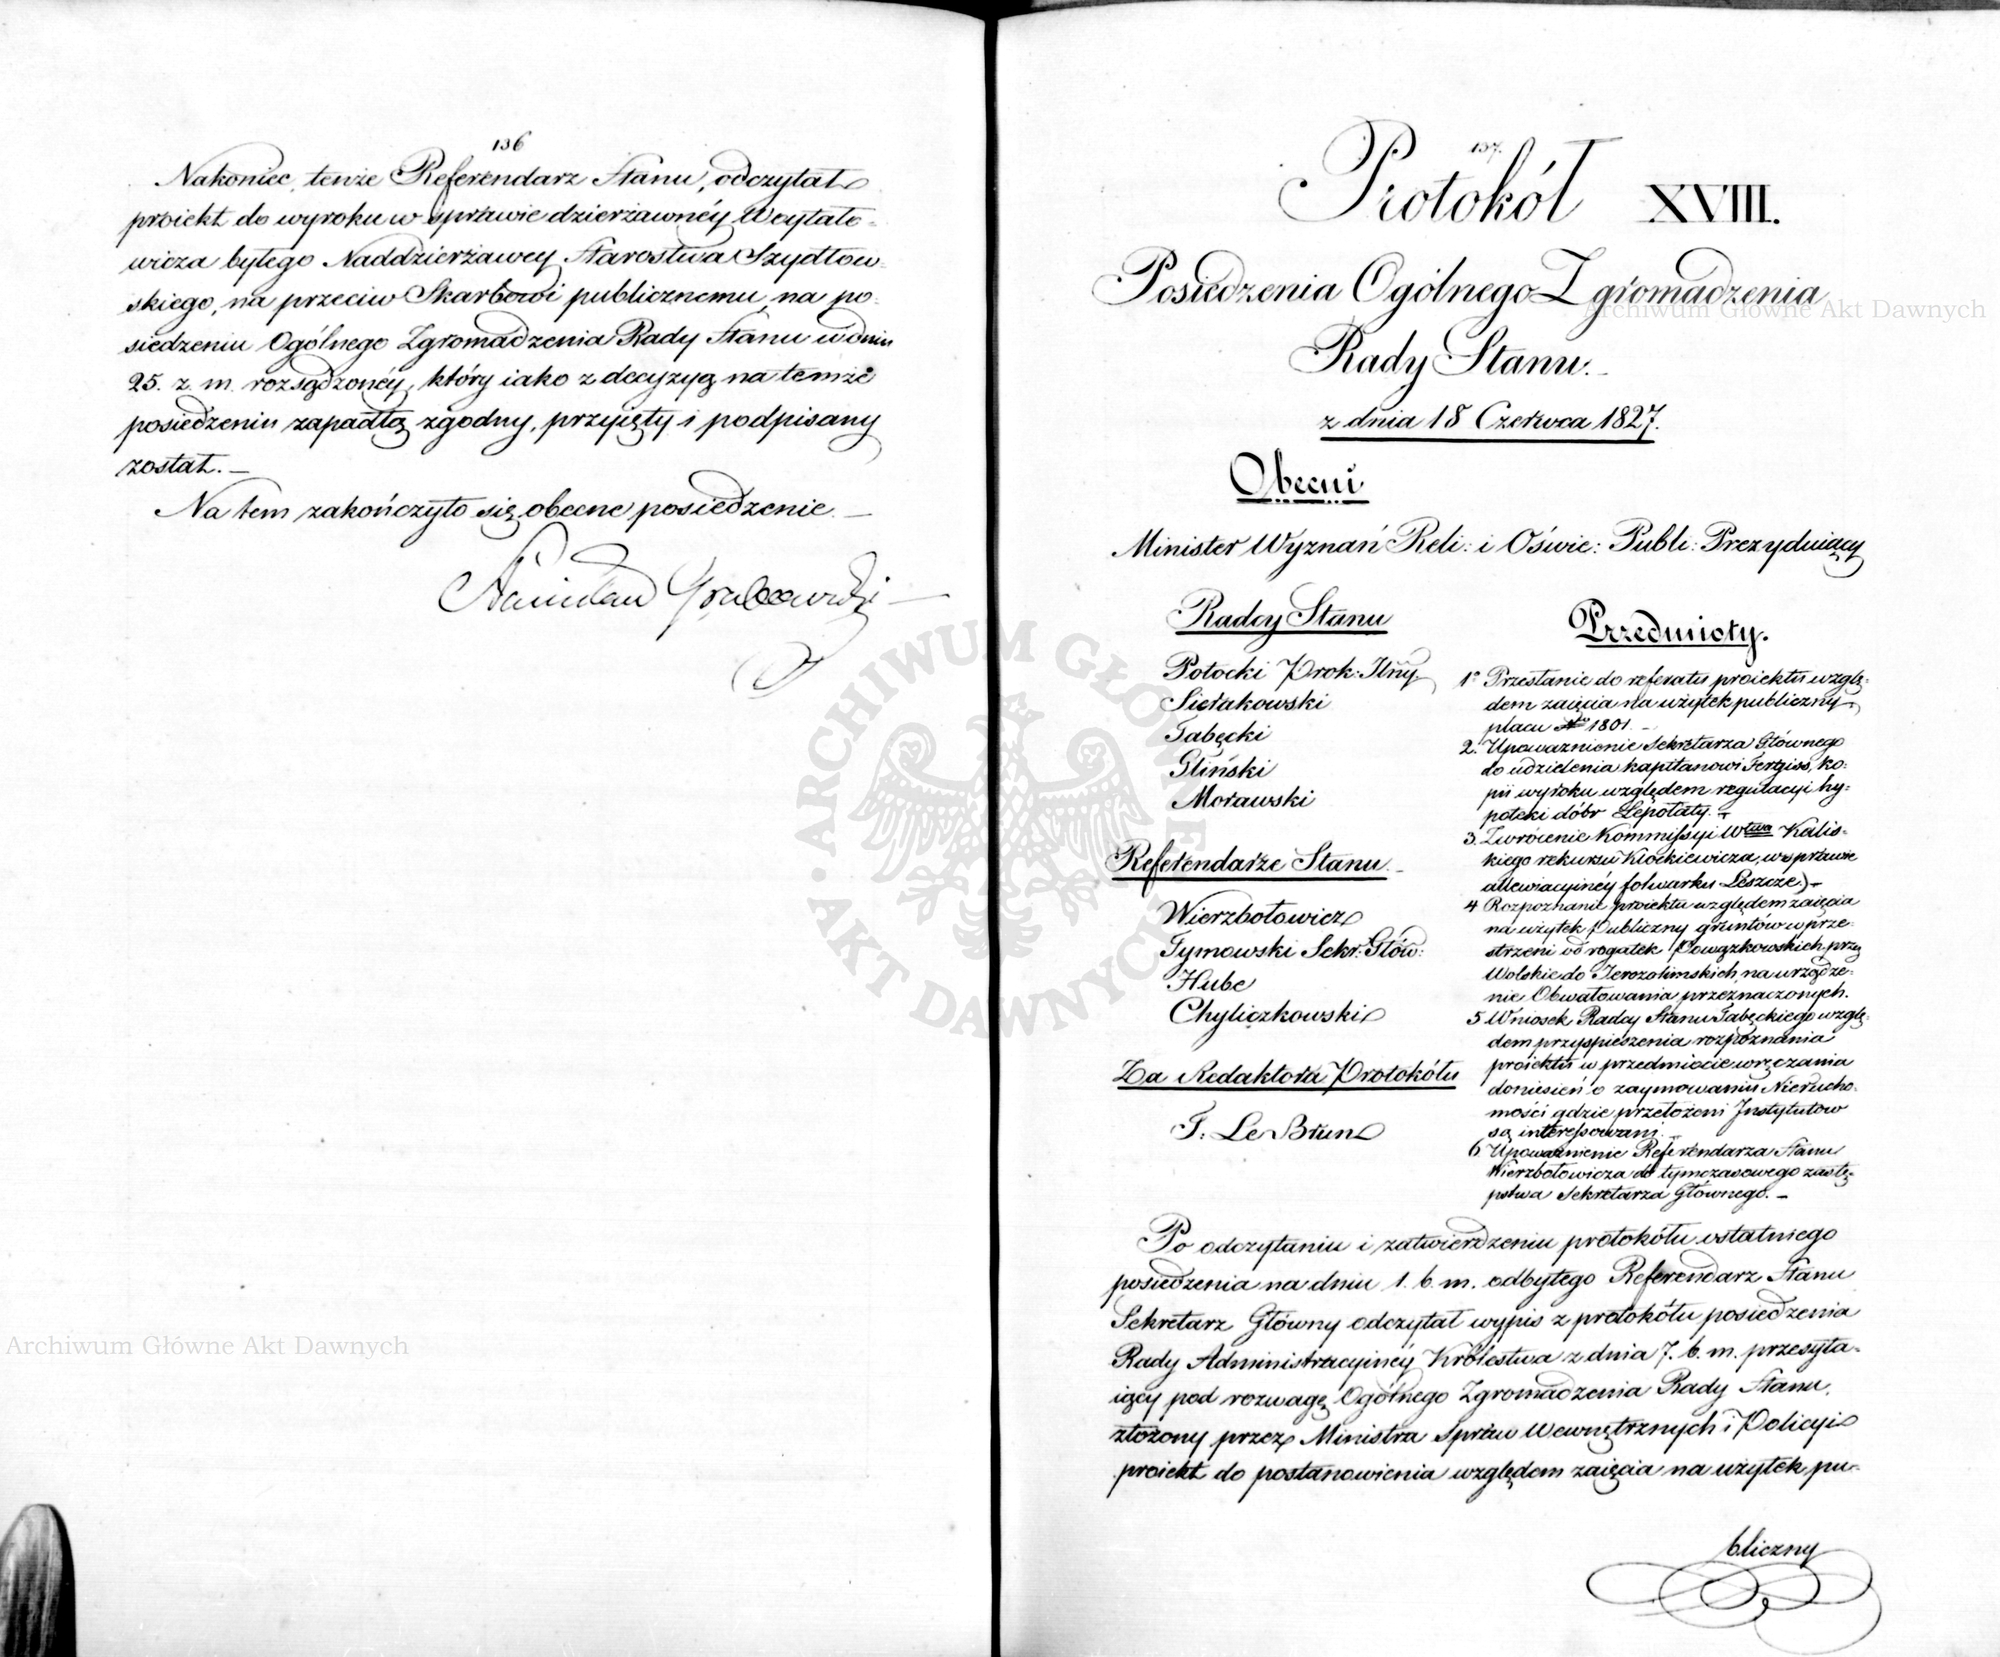 136
Nakoniec, tenże Referendarz Stanu, odczytał
proiekt do wyroku w sprawie dzierżawnéy Woytało-
wicza byłego Naddzierżawcy Starostwa Szydłow-
skiego, na przeciw Skarbowi publicznemu, na po-
siedzeniu Ogólnego Zgromadzenia Rady Stanu w dniu
25. z. m. rozsądzonéy, który iako z decyzyą na temże
posiedzeniu zapadłą zgodny, przyięty i podpisany
został. —
Na tem zakończyło się obecne posiedzenie. —
Stanisław Grabowski
137.
Protokół XVIII.
Posiedzenia Ogólnego Zgromadzenia
Rady Stanu. —
z dnia 18 Czerwca 1827.
Obecni
Minister Wyznań Reli: i Oświe: Publi: Prezyduiący
Radcy Stanu
Potocki Prok: Jlny
Sierakowski
Tabęcki
Gliński
Morawski
Referendarze Stanu. —
Wierzbołowicz
Tymowski Sekr: Głów:
Hube
Chyliczkowski
Za Redaktora Protokółu
T: Le Brun
Przedmioty.
1° Przesłanie do referatu proiektu wzglę-
dem zaięcia na użytek publiczny
placu No 1801. —
2. Upoważnienie Sekretarza Głównego
do udzielenia kapitanowi Fergiss, ko-
pii wyroku względem regulacyi hy-
poteki dóbr Łepołaty. —
3. Zwrócenie Kommissyi Wtwa Kalis-
kiego rekursu Klockiewicza, w sprawie
allewiacyinéy folwarku Leszcze. —
4 Rozpoznanie proiektu względem zaięcia
na użytek Publiczny gruntów w prze-
strzeni od rogatek Powązkowskich przez
Wolskie do Jerozolimskich, na urządze-
nie Obwałowania przeznaczonych.
5 Wniosek Radcy Stanu Tabęckiego wzglę-
dem przyspieszenia rozpoznania
proiektu w przedmiocie wręczania
doniesień o zaymowaniu Nierucho-
mości gdzie przełożeni Jnstytutow
są interessowani. —
6 Upoważnienie Referendarza Stanu
Wierzbołowicza do tymczasowego zastę-
pstwa Sekretarza Głownego. —
Po odczytaniu i zatwierdzeniu protokółu ostatniego
posiedzenia na dniu 1. b. m. odbytego Referendarz Stanu
Sekretarz Główny odczytał wypis z protokółu posiedzenia
Rady Administracyinéy Królestwa z dnia 7. b. m. przesyła-
iący pod rozwagę Ogólnego Zgromadzenia Rady Stanu,
złożony przez Ministra Spraw Wewnętrznych i Policyi
proiekt do postanowienia względem zaięcia na użytek pu-
bliczny
Archiwum Główne Akt Dawnych
Archiwum Główne Akt Dawnych
ARCHIWUM GŁÓWNE · AKT DAWNYCH